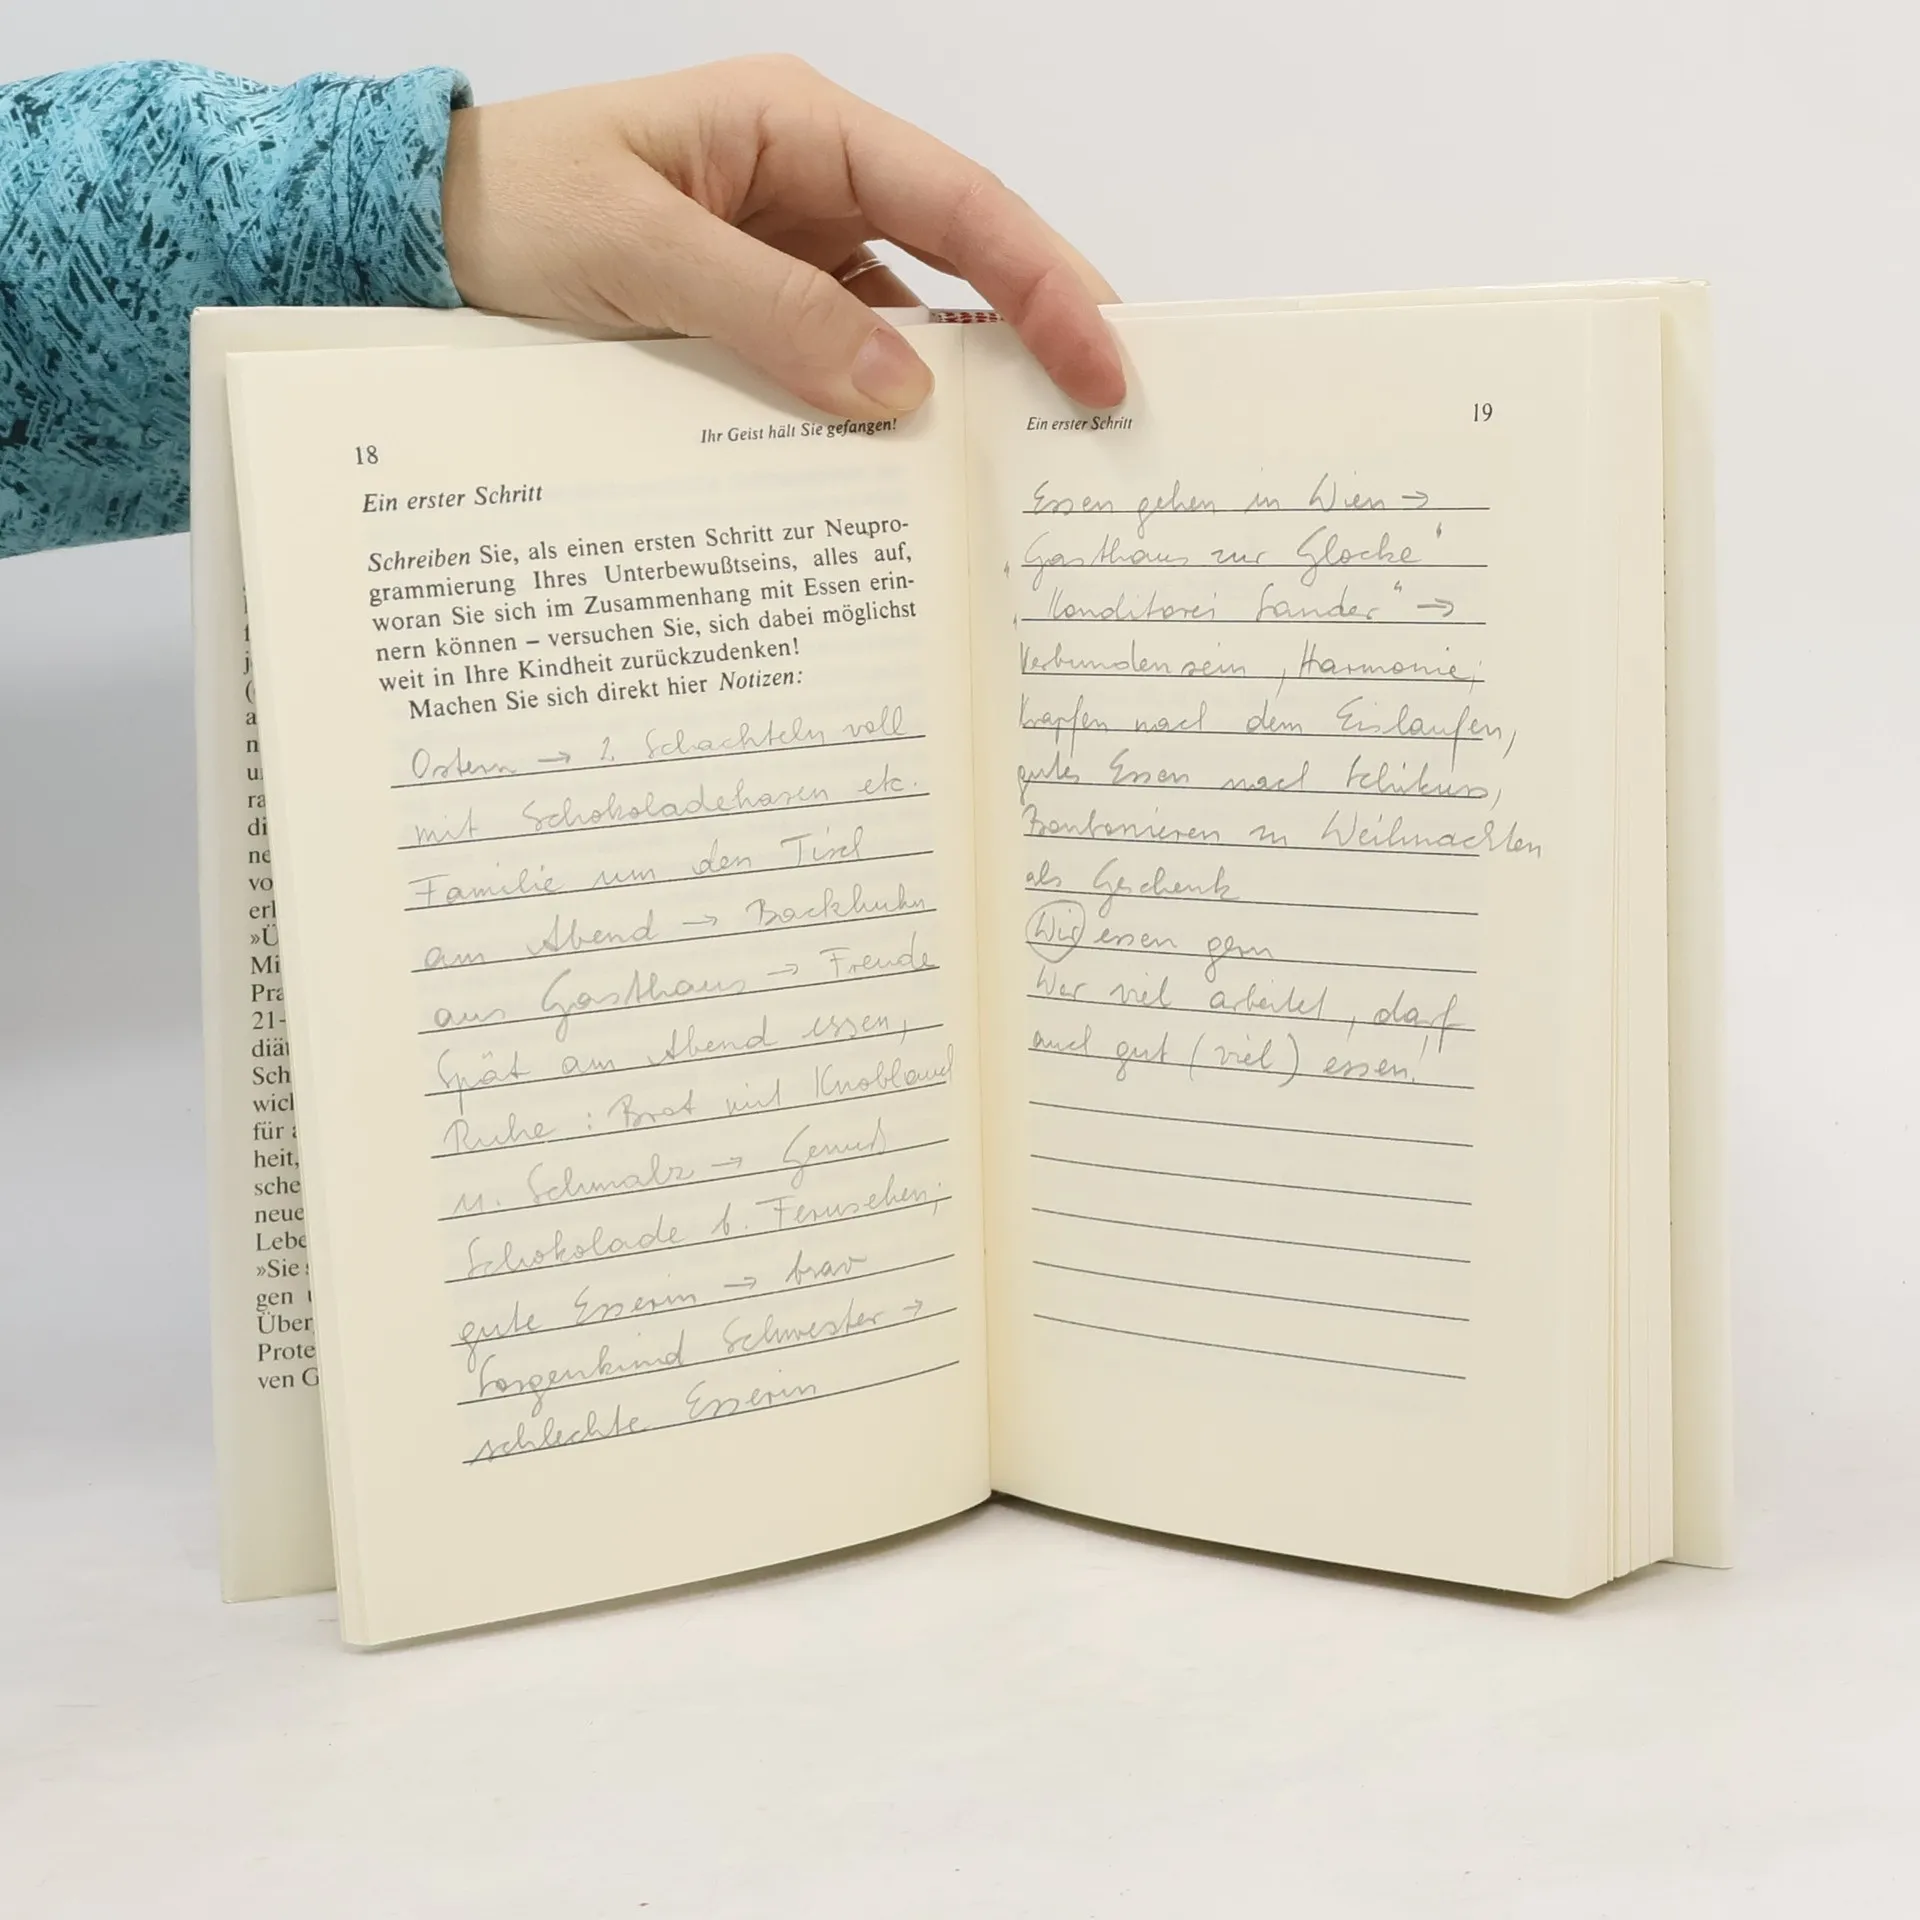 18
Ihr Geist hält Sie gefangen!
Ein erster Schritt
Schreiben Sie, als einen ersten Schritt zur Neupro-
grammierung Ihres Unterbewußtseins, alles auf,
woran Sie sich im Zusammenhang mit Essen erin-
nern können – versuchen Sie, sich dabei möglichst
weit in Ihre Kindheit zurückzudenken!
Machen Sie sich direkt hier Notizen:
Ostern → 2 Schachteln voll
mit Schokoladehasen etc.
Familie um den Tisch
am Abend → Backhuhn
aus Gasthaus → Freude
Spät am Abend essen,
Ruhe : Brot mit Knoblauch
u. Schmalz → Genuß
Schokolade b. Fernsehen;
gute Esserin → brav
Sorgenkind Schwester →
schlechte Esserin
Ein erster Schritt
19
Essen gehen in Wien →
"Gasthaus zur Glocke"
"Konditorei Sander" →
Verbunden sein, Harmonie;
Krapfen nach dem Eislaufen,
gutes Essen nach Schikurs,
Bonbonieren zu Weihnachten
als Geschenk
Wir essen gern
Wer viel arbeitet, darf
auch gut (viel) essen!
j
(
a
n
u
ra
di
ne
vo
erl
»Ü
Mi
Pra
21-
diät
Sch
wich
für a
heit,
sche
neue
Lebe
»Sie s
gen u
Über
Prote
ven G